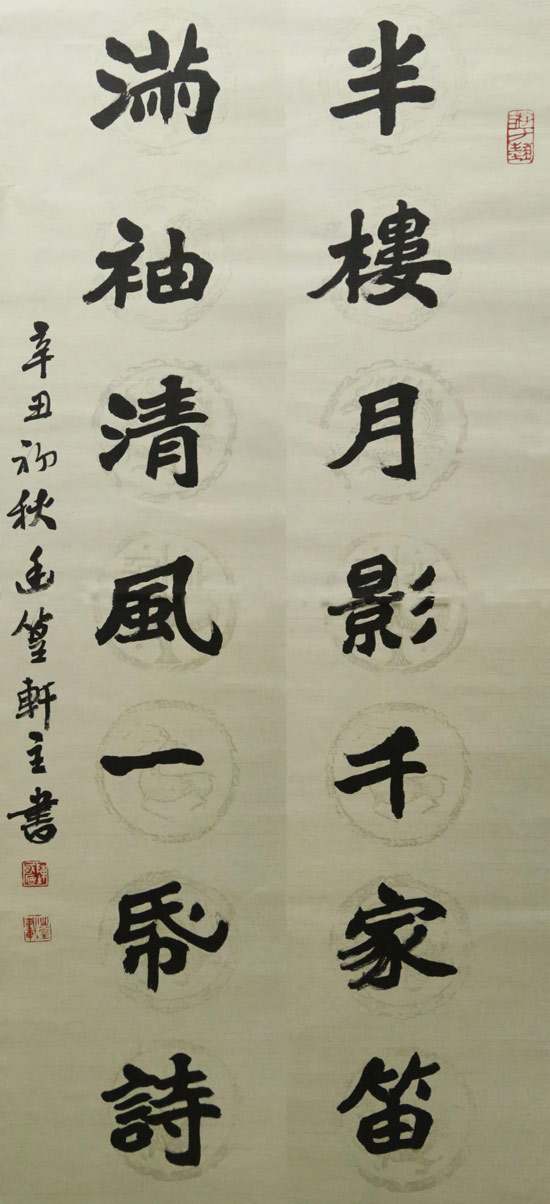 半樓月影千家笛
滿袖清風一帋詩
辛丑初秋幽篁軒主書